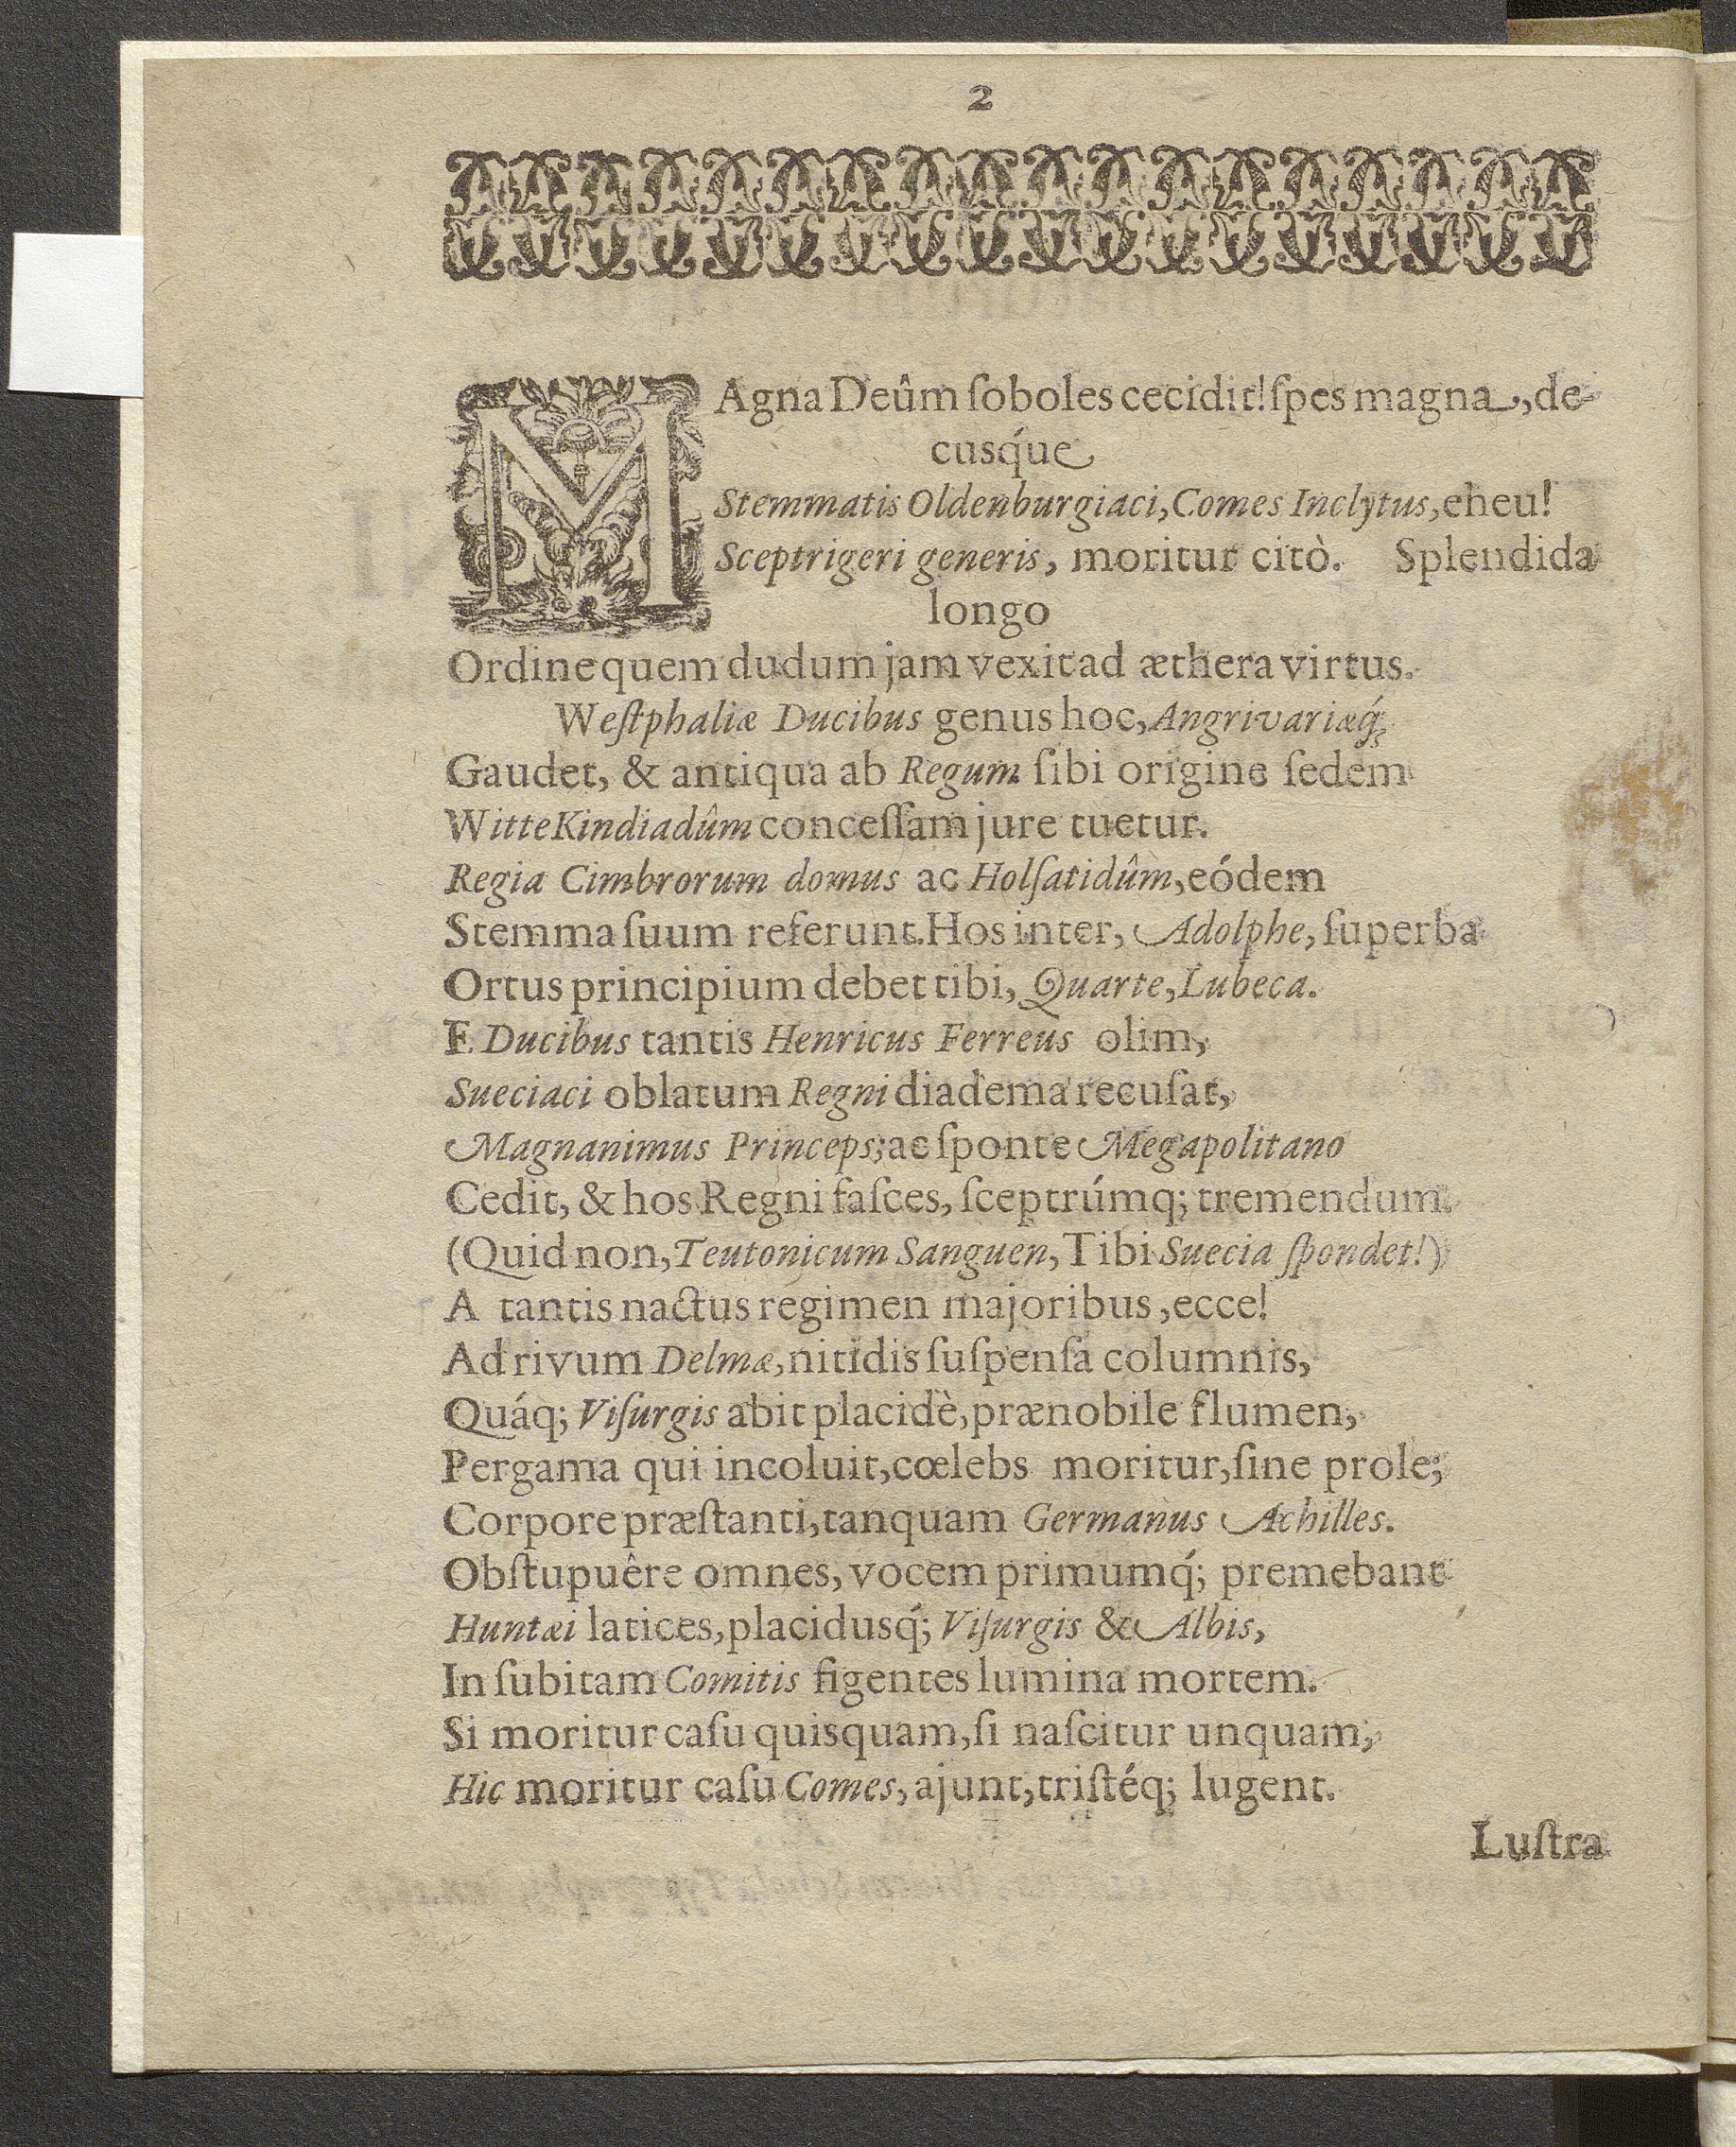 2
MAgna Deûm ſoboles cecidit! ſpes magna, de-
cusq́ue
Stemmatis Oldenburgiaci, Comes Inclytus, eheu!
Sceptrigeri generis, moritur citò. Splendida
longo
Ordine quem dudum jam vexit ad æthera virtus.
Weſtphaliæ Ducibus genus hoc, Angrivariæq́;
Gaudet, & antiqua ab Regum ſibi origine ſedem
WitteKindiadûm conceſſam jure tuetur.
Regia Cimbrorum domus ac Holſatidûm, eódem
Stemma ſuum referunt. Hos inter, Adolphe, ſuperba
Ortus principium debet tibi, Quarte, Lubeca.
E Ducibus tantis Henricus Ferreus olim,
Sueciaci oblatum Regni diadema recuſat,
Magnanimus Princeps; ac ſponte Megapolitano
Cedit, & hos Regni faſces, ſceptrúmq; tremendum.
(Quid non, Teutonicum Sanguen, Tibi Suecia ſpondet!)
A tantis nactus regimen majoribus, ecce!
Ad rivum Delmæ, nitidis ſuſpenſa columnis,
Quáq; Viſurgis abit placidè, prænobile flumen,
Pergama qui incoluit, cœlebs moritur, ſine prole;
Corpore præſtanti, tanquam Germanus Achilles.
Obſtupuêre omnes, vocem primumq́; premebant
Huntæi latices, placidusq́; Viſurgis & Albis,
In ſubitam Comitis figentes lumina mortem.
Si moritur caſu quisquam, ſi naſcitur unquam,
Hic moritur caſu Comes, ajunt, triſtéq; lugent.
Luſtra